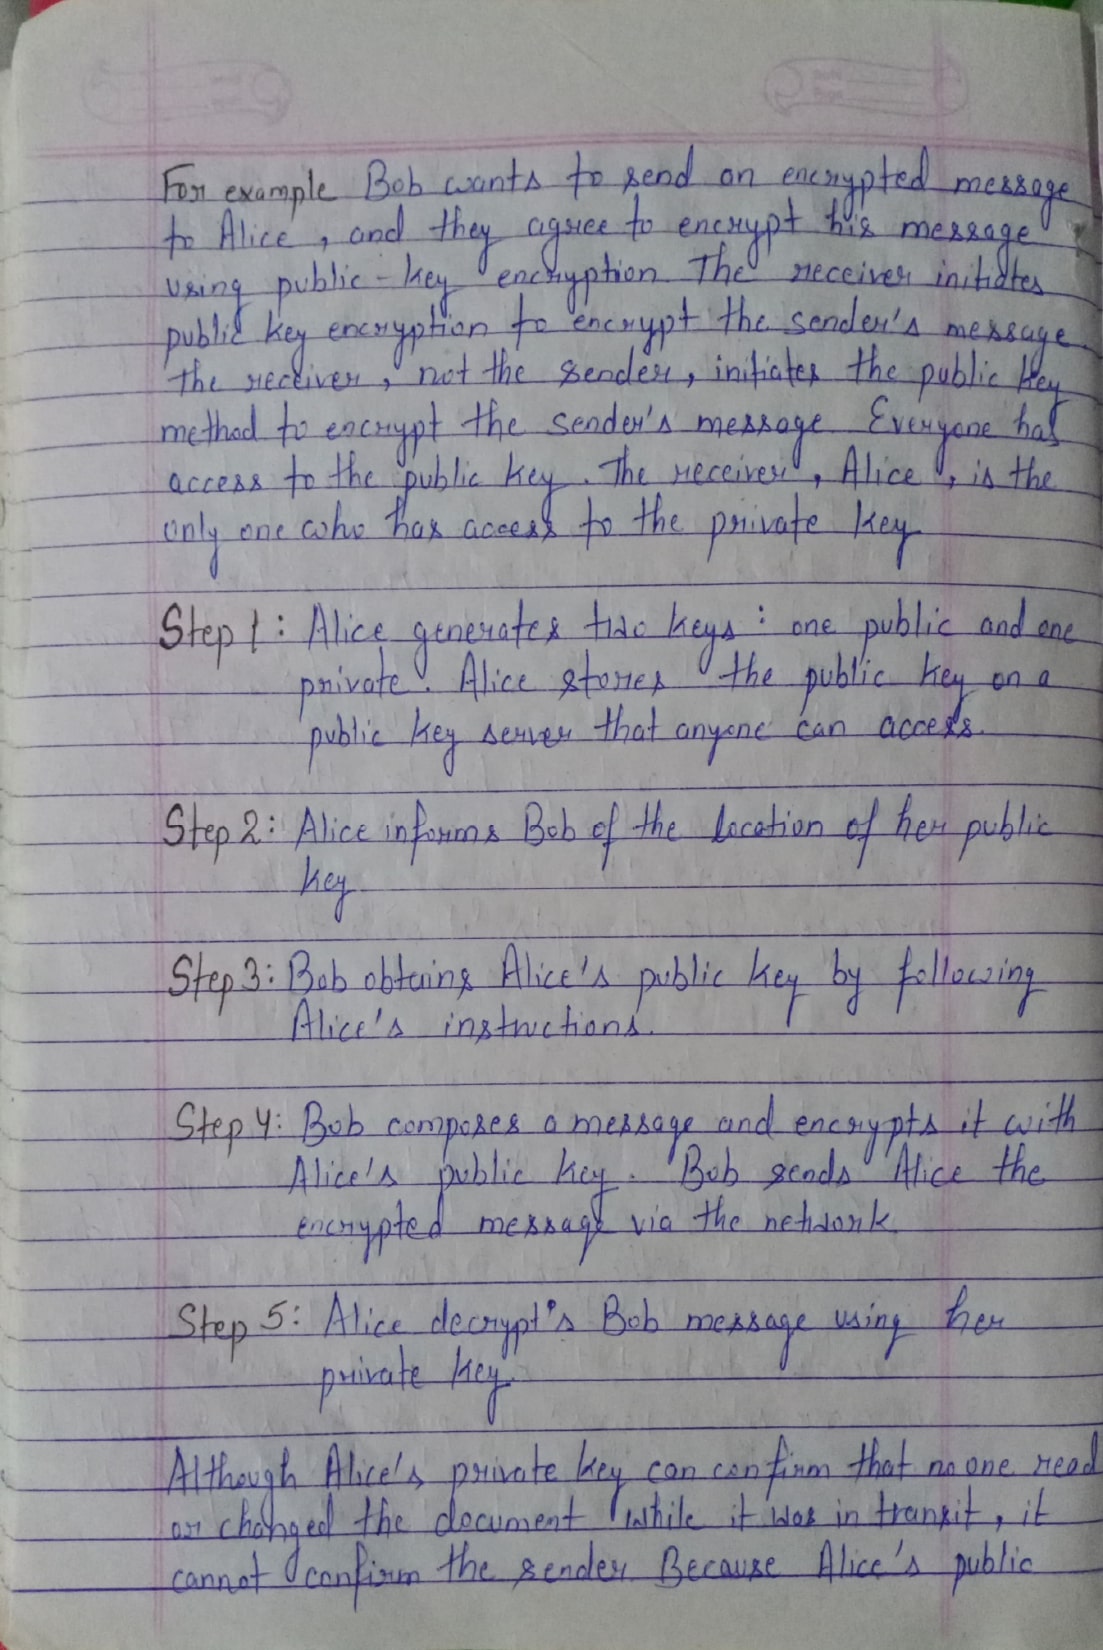 For example Bob wants to send an encrypted message
to Alice, and they agree to encrypt his message
using public-key encryption The receiver initiates
public key encryption to encrypt the sender's message.
the receiver, not the sender, initiates the public key
method to encrypt the sender's message Everyone has
access to the public key. The receiver, Alice, is the
only one who has access to the private key
Step 1: Alice generates two keys: one public and one
private. Alice stores the public key on a
public key server that anyone can access.
Step 2: Alice informs Bob of the location of her public
key
Step 3: Bob obtains Alice's public key by following
Alice's instructions.
Step 4: Bob composes a message and encrypts it with
Alice's public key. Bob sends Alice the
encrypted message via the network
Step 5: Alice decrypt's Bob message using her
private key.
Although Alice's private key can confirm that no one read
or changed the document while it was in transit, it
cannot confirm the sender Because Alice's public